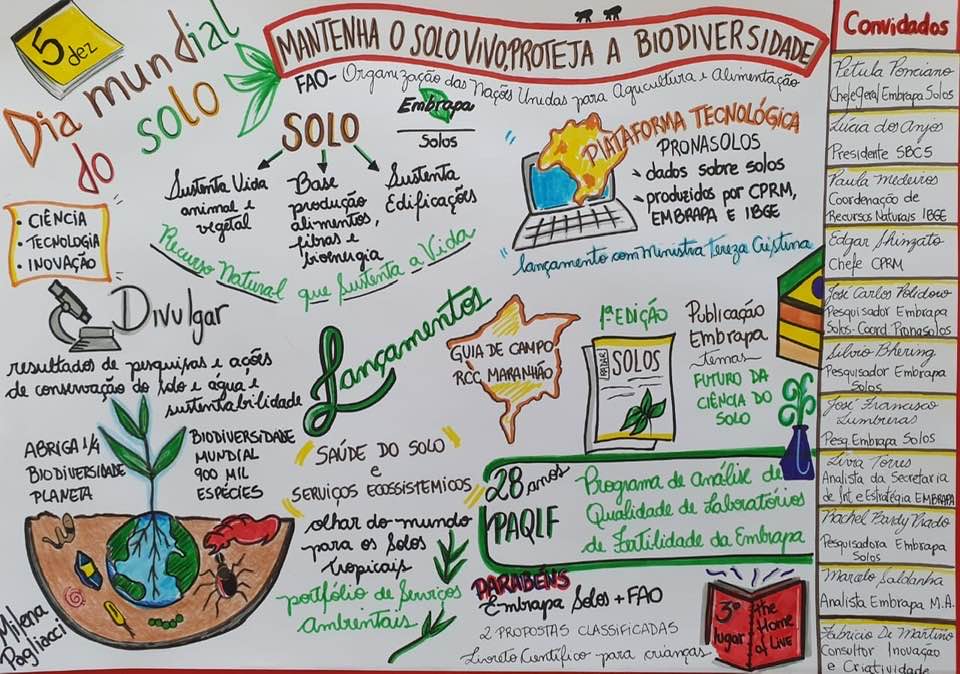 5
dez
Dia mundial
do solo
MANTENHA O SOLO VIVO, PROTEJA A BIODIVERSIDADE
FAO - Organização das Nações Unidas para Aquecultura e Alimentação
Embrapa
Solos
SOLO
Sustenta Vida
animal e
vegetal
Base
produção
alimentos,
fibras e
bioenergia
Sustenta
Edificações
Recurso Natural que Sustenta a Vida
• CIÊNCIA
• TECNOLOGIA
• INOVAÇÃO
"PLATAFORMA TECNOLÓGICA
PRONASOLOS
dados sobre solos
produzidos por CPRM,
EMBRAPA E IBGE
lançamento com Ministra Tereza Cristina
Divulgar
resultados de pesquisas e ações
de conservação do solo e água e
sustentabilidade
Lançamentos
GUIA DE CAMPO
RCC MARANHÃO
1ª EDIÇÃO
SOLOS
Publicação
Embrapa
temas
FUTURO DA
CIÊNCIA DO
SOLO
ABRIGA 1/4
BIODIVERSIDADE
PLANETA
BIODIVERSIDADE
MUNDIAL
900 MIL
ESPÉCIES
SAÚDE DO SOLO
e
SERVIÇOS ECOSSISTEMICOS
olhar do mundo
para os Solos
tropicais
portfólio de Serviços
Ambientais
28 anos
PAQLF
Programa de Análise de
Qualidade de Laboratórios
de Fertilidade da Embrapa
PARABÉNS
Embrapa Solos + FAO
2 PROPOSTAS CLASSIFICADAS
Livreto Científico para crianças
3º
lugar
the
Home
of LIVE
Milena
Pagliacci
Convidados
Petula Ponciano
Chefe Geral Embrapa Solos
Lúcia dos Anjos
Presidente SBCS
Paula Medeiros
Coordenação de
Recursos Naturais IBGE
Edgar Shinzato
Chefe CPRM
José Carlos Polidoro
Pesquisador Embrapa
Solos - Coord. Pronasolos
Silvio Bhering
Pesquisador Embrapa
Solos
José Francisco
Lumbreras
Pesq. Embrapa Solos
Livia Torres
Analista da Secretaria
de Int e Estratégia EMBRAPA
Rachel Bardy Prado
Pesquisadora Embrapa
Solos
Marcelo Saldanha
Analista Embrapa M.A.
Fabricio De Martino
Consultor Inovação
e Criatividade